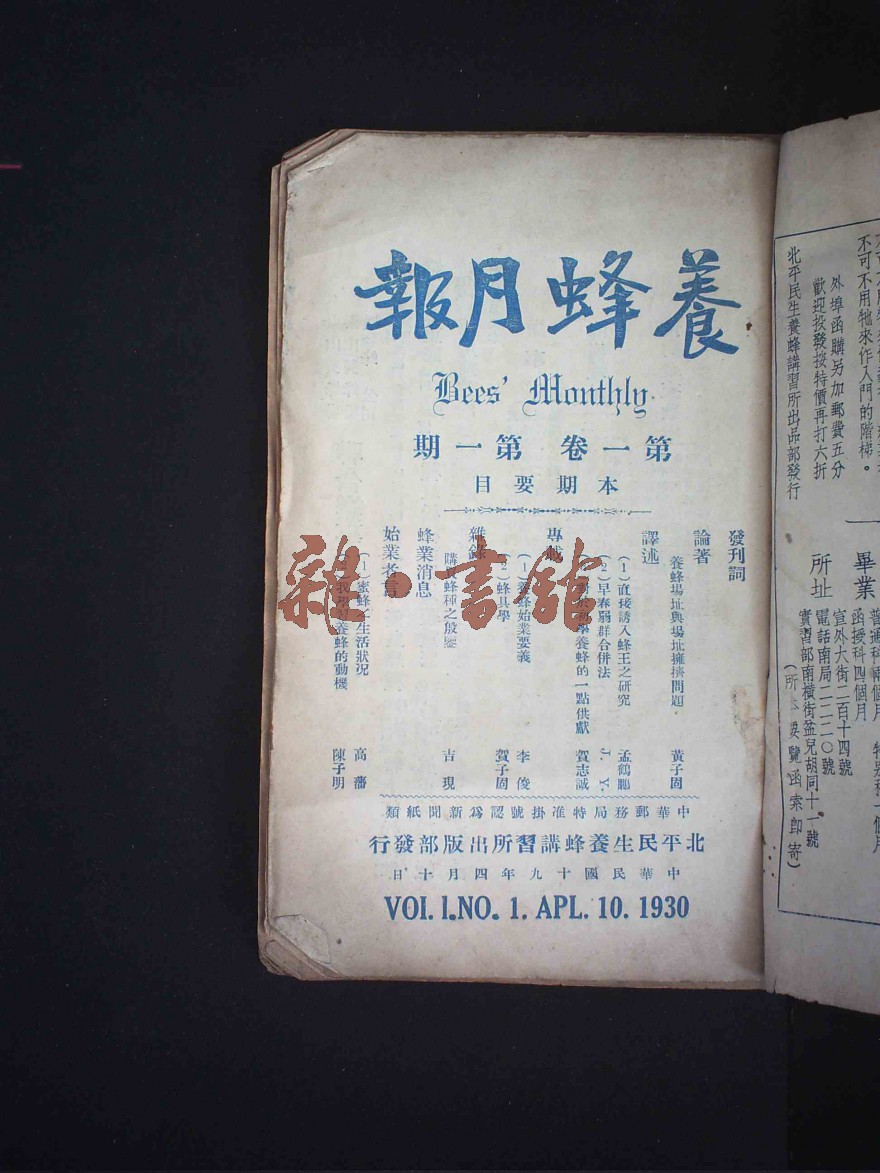 養蜂月報
Bees' Monthly
第一卷 第一期
本期要目
發刊詞
論著
養蜂場址與場址擁擠問題 黃子固
譯述
(1)直接誘入蜂王之研究 孟鶴鵬
(2)早春弱群合併法 J. Y.
學養蜂的一點供獻 賀志誠
專載
(1)養蜂始業要義 李俊
(2)蜂具學 賀子固
雜錄
購買蜂種之殷鑒 吉現
蜂業消息
始業者言
(1)蜜蜂之生活狀況 高藩
養蜂的動機 陳子明
中華郵務局特准掛號認爲新聞紙類
北平民生養蜂講習所出版部發行
中華民國十九年四月十日
VOL. 1. NO. 1. APL. 10. 1930
雜·書館
不可不用牠來作入門的階梯。
外埠函購另加郵費五分
歡迎投發按特價再打六折
北平民生養蜂講習所出品部發行
畢業
函授科四個月
所址
宣外大街二百十四號
電話南局二二二〇號
實習部南橫街盆兒胡同十一號
(所本要覽函索即寄)